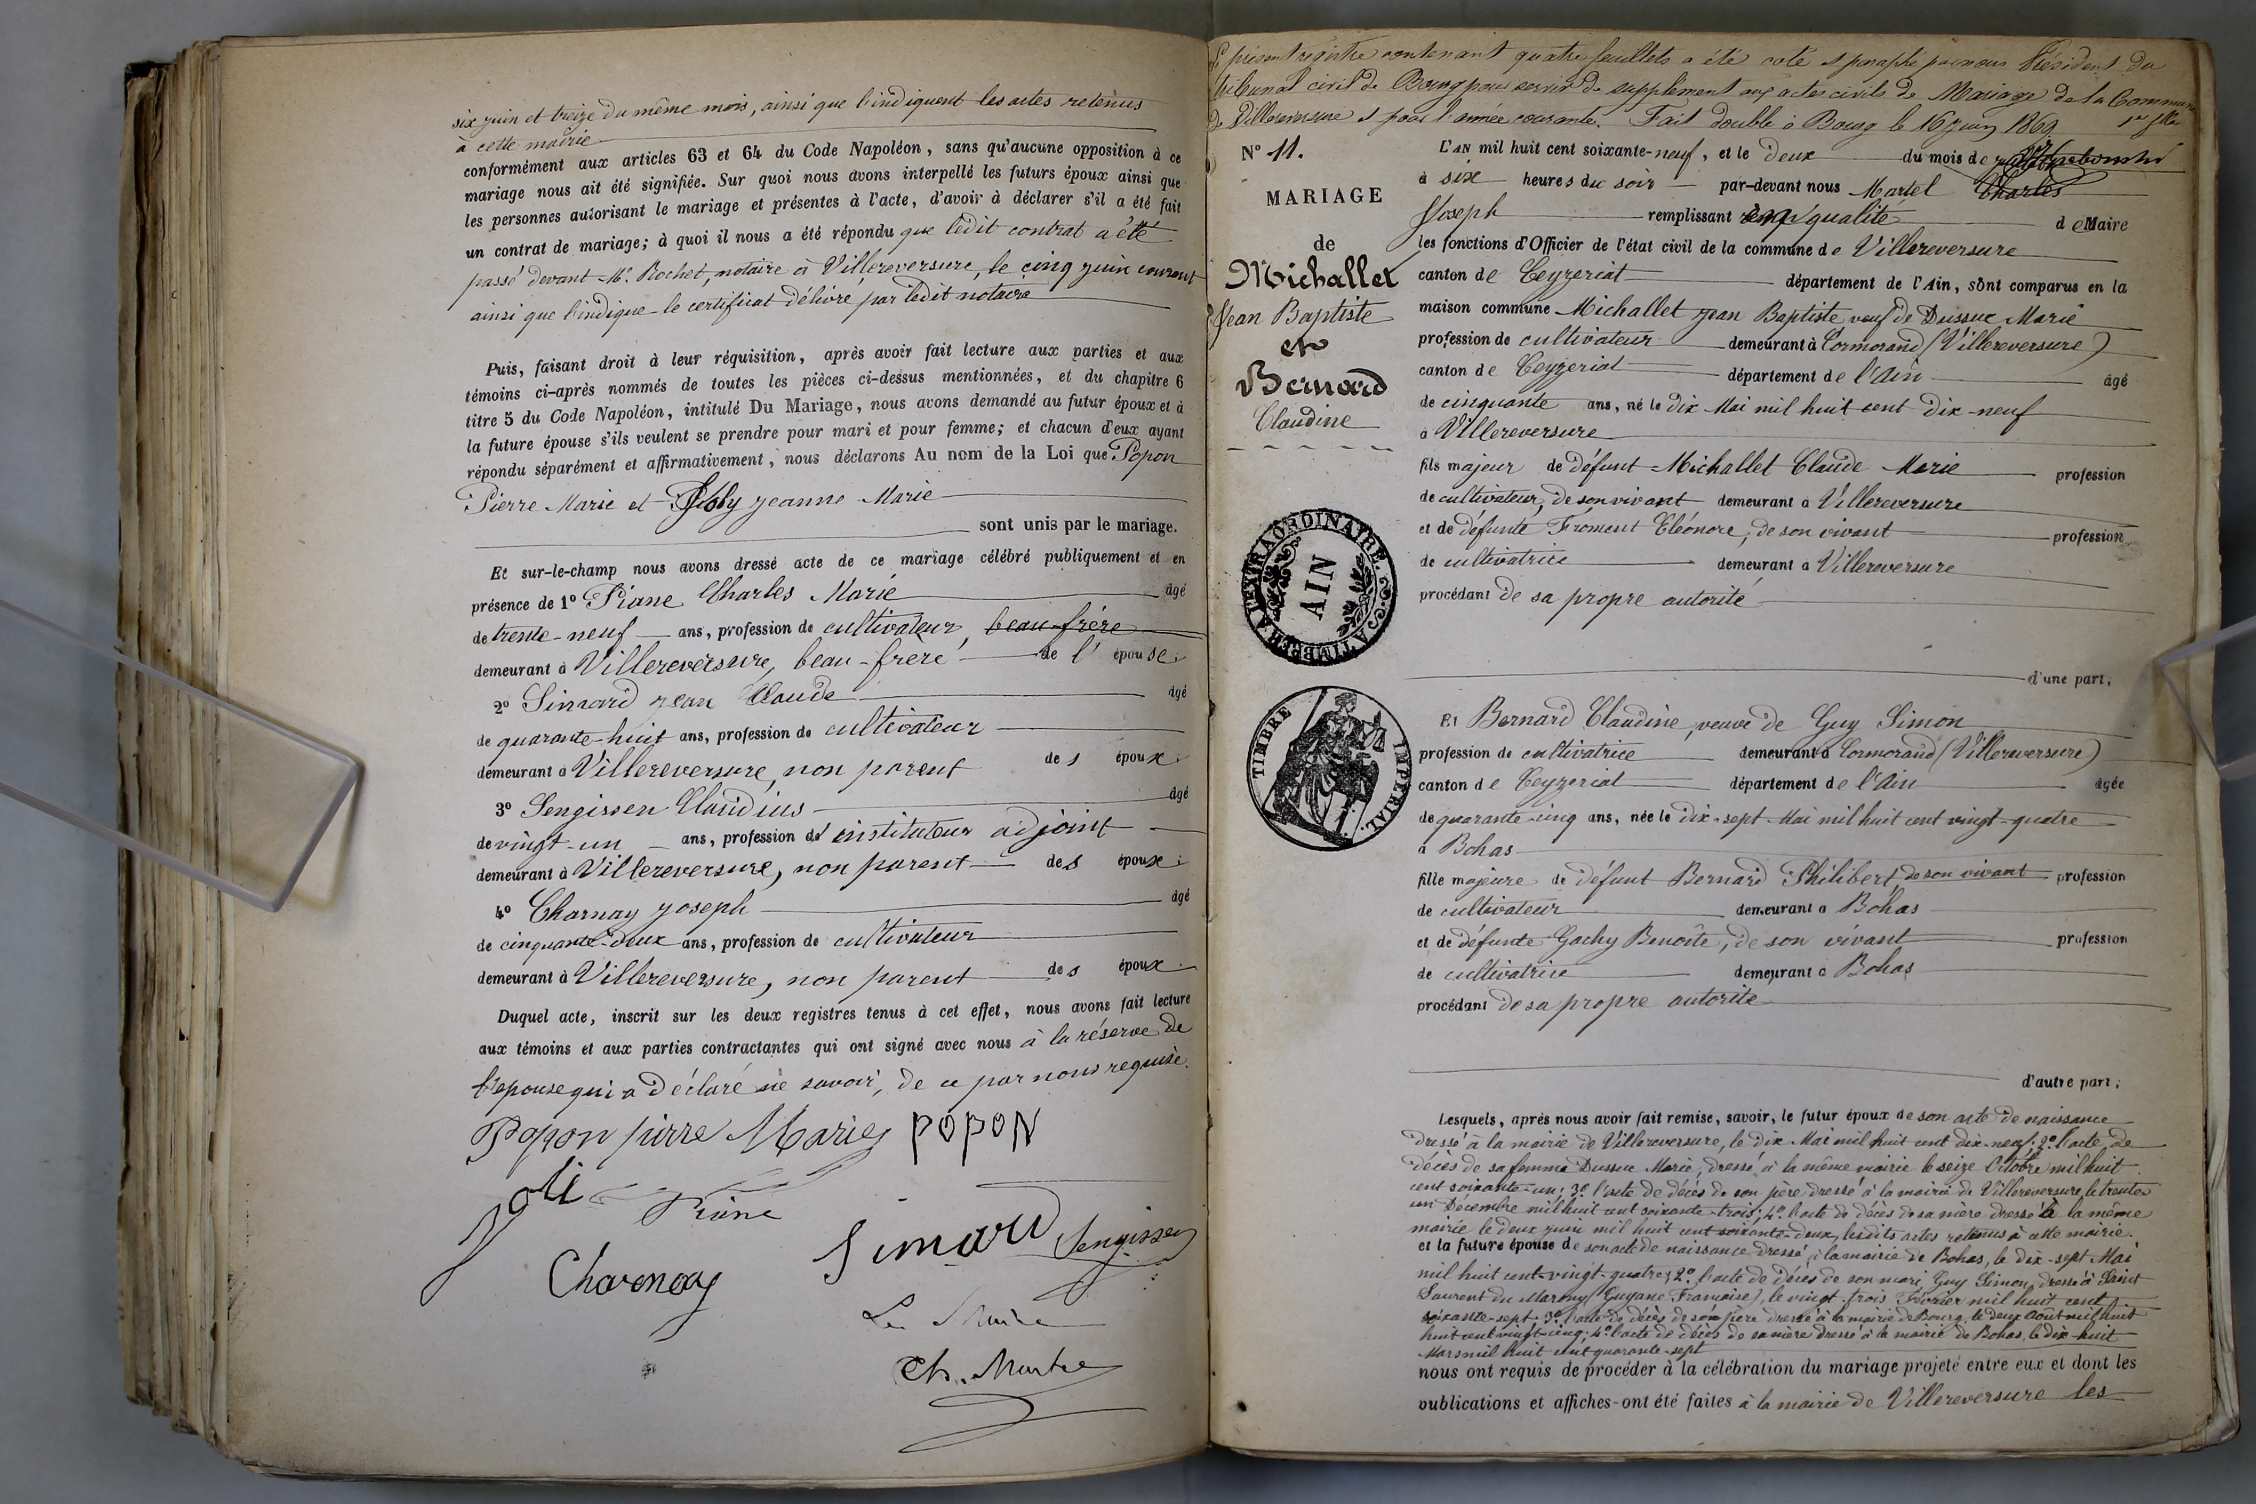 six juin et treize du même mois, ainsi que l'indiquent les actes retenus
à cette mairie
conformément aux articles 63 et 64 du Code Napoléon, sans qu'aucune opposition à ce
mariage nous ait été signifiée. Sur quoi nous avons interpellé les futurs époux ainsi que
les personnes autorisant le mariage et présentes à l'acte, d'avoir à déclarer s'il a été fait
un contrat de mariage; à quoi il nous a été répondu que ledit contrat a été
passé devant Me. Rochet, notaire à Villereversure, le cinq juin courant
ainsi que l'indique le certificat délivré par ledit notaire
Puis, faisant droit à leur réquisition, après avoir fait lecture aux parties et aux
témoins ci-après nommés de toutes les pièces ci-dessus mentionnées, et du chapitre 6
titre 5 du Code Napoléon, intitulé Du Mariage, nous avons demandé au futur époux et à
la future épouse s'ils veulent se prendre pour mari et pour femme; et chacun d'eux ayant
répondu séparément et affirmativement, nous déclarons Au nom de la Loi que Popon
Pierre Marie et Joly Jeanne Marie
sont unis par le mariage.
Et sur-le-champ nous avons dressé acte de ce mariage célébré publiquement et en
présence de 1º Piane Charles Marie âgé
de trente-neuf ans, profession de cultivateur, beau-frère
demeurant à Villereversure, beau-frère de l' épouse;
2º Simard Jean Claude âgé
de quarante-huit ans, profession de cultivateur
demeurant à Villereversure, non parent des époux;
3º Sengissen Claudius âgé
de vingt-un ans, profession d' instituteur adjoint
demeurant à Villereversure, non parent des époux;
4º Charnay Joseph âgé
de cinquante-deux ans, profession de cultivateur
demeurant à Villereversure, non parent des époux.
Duquel acte, inscrit sur les deux registres tenus à cet effet, nous avons fait lecture
aux témoins et aux parties contractantes qui ont signé avec nous à la réserve de
l'épouse qui a déclaré ne savoir, de ce par nous requise.
Popon pierre Marie POPON
Joli
Piane
Simard Sengissen
Charnay
Le Maire
Ch. Martel
Le présent registre contenant quatre feuillets a été coté et paraphé par nous Président du
tribunal civil de Bourg pour servir de supplément aux actes civils de Mariage de la Commune
de Villereversure et pour l'année courante. Fait double à Bourg le 16 juin 1869
1er flle
Nº 11.
MARIAGE
de
Michallet
Jean Baptiste
et
Bernard
Claudine
TIMBRE A L'EXTRAORDINAIRE.
AIN
TIMBRE IMPERIAL.
L'AN mil huit cent soixante-neuf, et le deux du mois de
à six heures du soir par-devant nous Martel Charles
Joseph remplissant en qualité de Maire
les fonctions d'Officier de l'état civil de la commune de Villereversure
canton de Ceyzeriat département de l'Ain, sont comparus en la
maison commune Michallet Jean Baptiste veuf de Dussuc Marie
profession de cultivateur demeurant à Cormorand (Villereversure)
canton de Ceyzeriat département de l'Ain âgé
de cinquante ans, né le dix Mai mil huit cent dix-neuf
à Villereversure
fils majeur de défunt Michallet Claude Marie profession
de cultivateur, de son vivant demeurant à Villereversure
et de défunte Froment Eléonore, de son vivant profession
de cultivatrice demeurant à Villereversure
procédant de sa propre autorité
d'une part;
Et Bernard Claudine, veuve de Guy Simon
profession de cultivatrice demeurant à Cormorand (Villereversure)
canton de Ceyzeriat département de l'Ain âgée
de quarante-cinq ans, née le dix-sept Mai mil huit cent vingt-quatre
à Bohas
fille majeure de défunt Bernard Philibert, de son vivant profession
de cultivateur demeurant à Bohas
et de défunte Gachy Benoîte, de son vivant profession
de cultivatrice demeurant à Bohas
procédant de sa propre autorité
d'autre part;
Lesquels, après nous avoir fait remise, savoir, le futur époux de son acte de naissance
dressé à la mairie de Villereversure, le dix Mai mil huit cent dix-neuf; 2º l'acte de
décès de sa femme Dussuc Marie, dressé à la même mairie le seize Octobre mil huit
cent soixante-un; 3º l'acte de décès de son père dressé à la mairie de Villereversure, le trente
un Décembre mil huit cent soixante-trois; 4º l'acte de décès de sa mère dressé à la même
mairie le deux juin mil huit cent soixante-deux, lesdits actes retenus à cette mairie.
et la future épouse de son acte de naissance dressé à la mairie de Bohas, le dix-sept Mai
mil huit cent vingt-quatre; 2º l'acte de décès de son mari, Guy Simon, dressé à Saint
Laurent du Marony (Guyane Française), le vingt-trois Février mil huit cent
soixante-sept. 3º l'acte de décès de son père dressé à la mairie de Bourg, le deux Août mil huit
huit cent vingt-cinq; 4º l'acte de décès de sa mère dressé à la mairie de Bohas, le dix-huit
Mars mil huit cent quarante-sept
nous ont requis de procéder à la célébration du mariage projeté entre eux et dont les
publications et affiches ont été faites à la mairie de Villereversure les